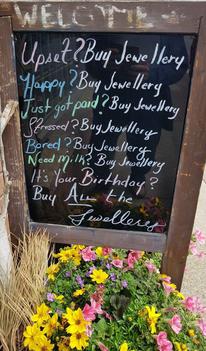 WELCOME
Upset? Buy Jewellery
Happy? Buy Jewellery
Just got paid? Buy Jewellery
Stressed? Buy Jewellery
Bored? Buy Jewellery
Need Milk? Buy Jewellery
It's Your Birthday?
Buy ALL the
Jewellery